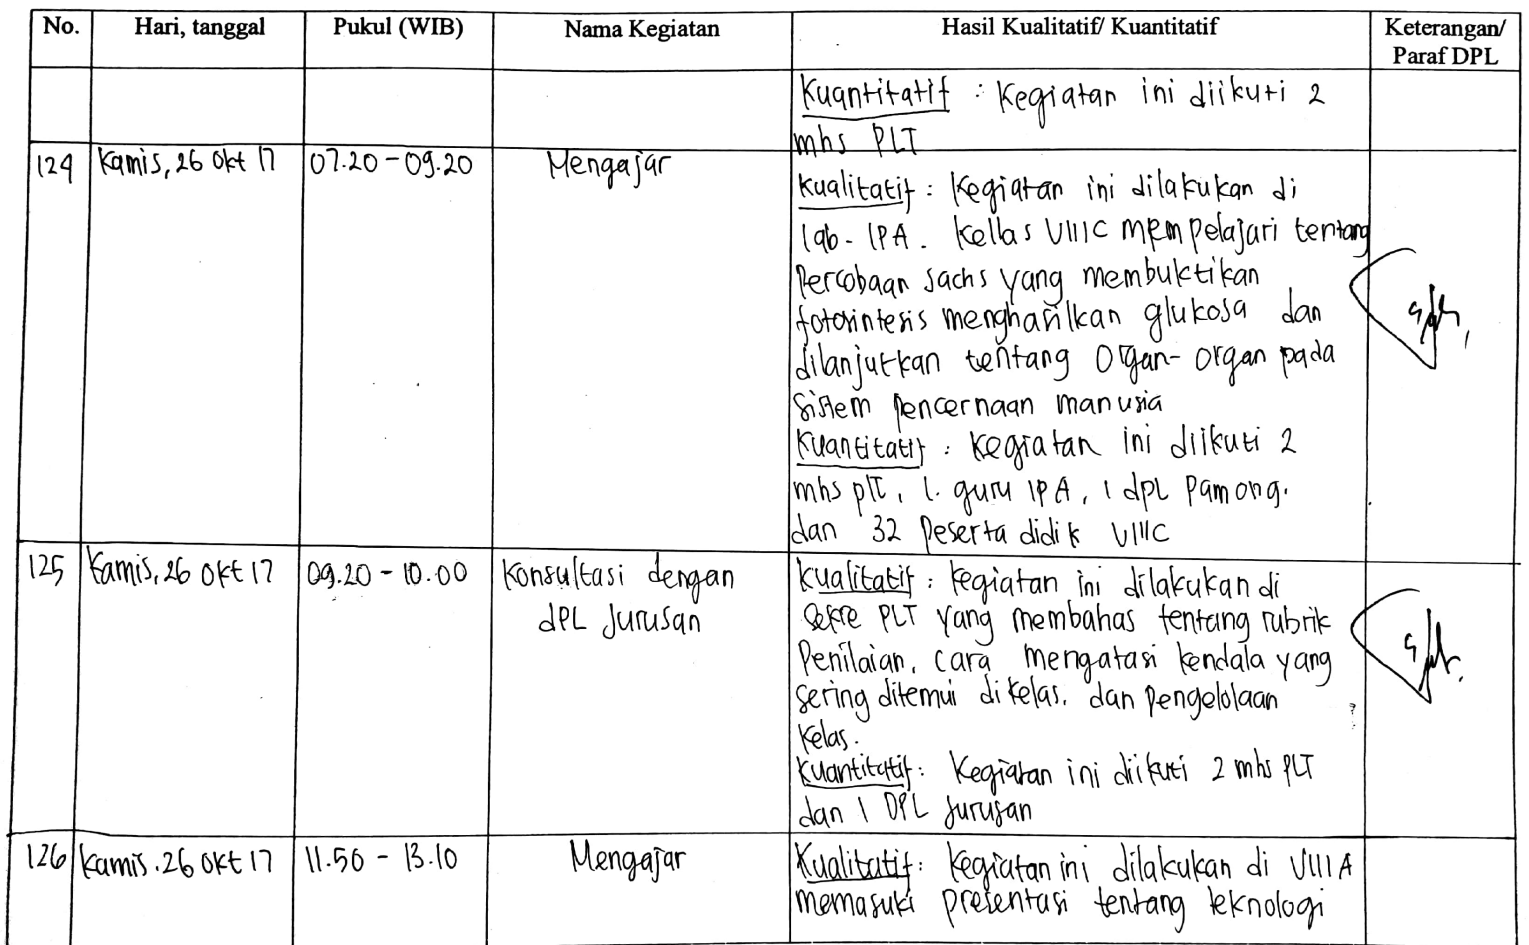 No. Hari, tanggal Pukul (WIB) Nama Kegiatan Hasil Kualitatif/ Kuantitatif Keterangan/
Paraf DPL
Kuantitatif : Kegiatan ini diikuti 2
mhs PLT
124 Kamis, 26 Okt 17 07.20 - 09.20 Mengajar
Kualitatif : Kegiatan ini dilakukan di
lab. IPA. Kellas VIIIC mempelajari tentang
Percobaan Sachs yang membuktikan
fotosintesis menghasilkan glukosa dan
dilanjutkan tentang Organ-organ pada
Sistem pencernaan manusia
Kuantitatif : Kegiatan ini diikuti 2
mhs plt, 1. guru IPA, 1 dpl Pamong.
dan 32 Peserta didik VIIIC
125 Kamis, 26 Okt 17 09.20 - 10.00 Konsultasi dengan Kualitatif : Kegiatan ini dilakukan di
dPL Jurusan sekre PLT yang membahas tentang rubrik
Penilaian, cara mengatasi kendala yang
sering ditemui di kelas, dan pengelolaan
Kelas.
Kuantitatif : Kegiatan ini diikuti 2 mhs PLT
dan 1 DPL Jurusan
126 Kamis. 26 Okt 17 11.50 - 13.10 Mengajar Kualitatif : Kegiatan ini dilakukan di VIIIA
memasuki presentasi tentang teknologi